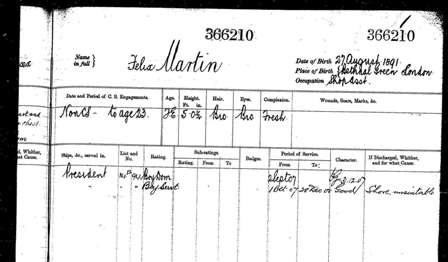 366210
366210
Name in full } Felix Martin
Date of Birth 27 August 1891
Place of Birth Bethnal Green London
Occupation Shop Asst.
Date and Period of C. S. Engagements. Age. Height. Ft. in. Hair. Eyes. Complexion. Wounds, Scars, Marks, &c.
Non CS - to age 23. 5 0½ Bro Bro Fresh
Whither, what Cause.
Ships, &c., served in. List and No. Rating. Sub-ratings. Rating. From To Badges. Period of Service. From To Character. If Discharged, Whither, and for what Cause.
President Boy Dom
" " " Boy Servt 1 Oct 07 Good Shore unsuitable